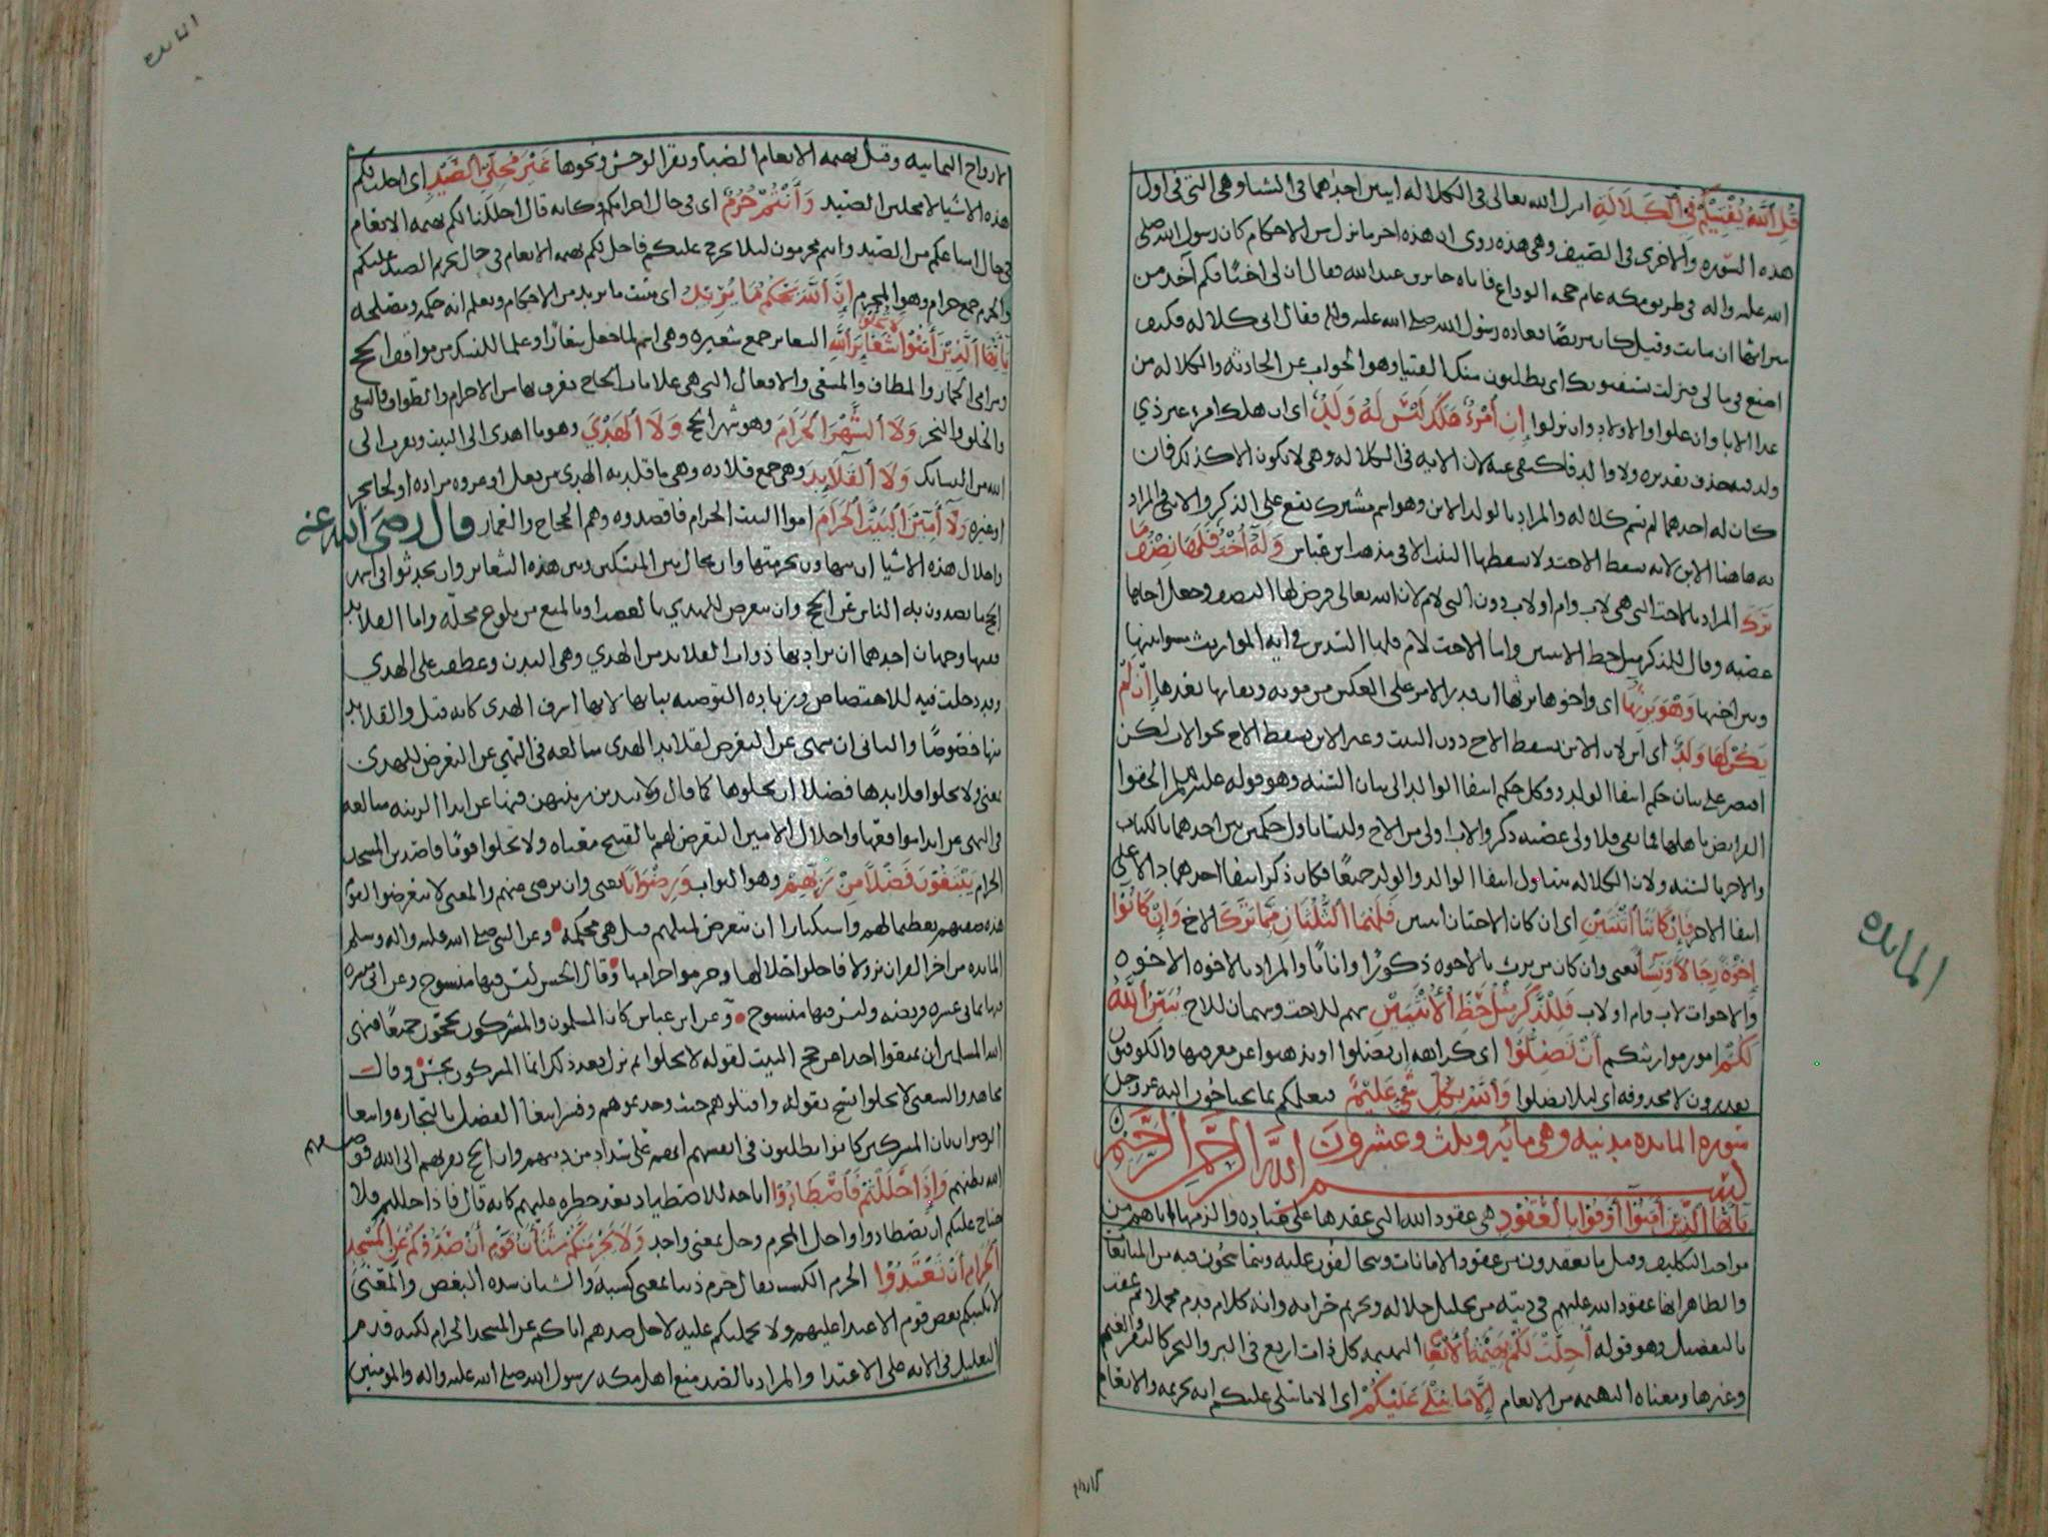 قُلِ ٱللَّهُ يُفْتِيكُمْ فِي ٱلْكَلَالَةِ انزل الله تعالى فى الكلاله ايتين احدٰهما فى الشتا وهى التى فى اول
هذه السّوره والاخرى فى الصّيف وهى هذه روى ان هذه اخر ما نزل من الاحكام كان رسول الله صلى
الله عليه واله فى طريق مكه عام حجه الوداع فاتاه جابر بن عبد الله فقال ان لى اختًا فكم آخذ من
ميراثها ان ماتت وقيل كان مريضًا فعاده رسول الله صلى الله عليه واله فقال انى كلاله فكيف
اصنع فى مالى فنزلت يستفتونك اى يطلبون منك الفتيا وهو الجواب عن الحادثه والكلاله من
عدا الابا وان علوا والاولاد وان نزلوا إِنِ ٱمْرُؤٌ هَلَكَ لَيْسَ لَهُ وَلَدٌ اى ان هلك امرء غير ذي
ولد فيه حذف تقديره ولا والد فاكتفى عنه لان الايه فى الكلاله وهى لا تكون الا كذلك فان
كان له احدهما لم تتم كلاله والمراد بالولد الابن وهو اسم مشترك يقع على الذكر والانثى والمراد
به هاهنا الابن لانه يسقط الاخت ولا يسقطها البنت الا فى مذهب ابن عباس وَلَهُ أُخْتٌ فَلَهَا نِصْفُ مَا
تَرَكَ المراد بالاخت التى هى لاب وام او لاب دون التى لام لان الله تعالى فرض لها النصف وجعل اخاها
عصبه وقال للذكر مثل حظ الانثيين واما الاخت لام فلها السّدس فى ايه المواريث مسوا بينها
وبين اخيها وَهُوَ يَرِثُهَا اى واخوها يرثها ان قدر الامر على العكس من موته وبقايها بعدها إِن لَّمْ
يَكُن لَّهَا وَلَدٌ اى ابن لان الابن يسقط الاخ دون البنت وغير الابن يسقط الاخ نحو الاب لكن
اقتصر على بيان حكم انتفا الولد ووكل حكم انتفا الوالد الى بيان السّنه وهو قوله عليه السلم الحقوا
الفرايض باهلها فما بقى فلاولى عصبه ذكر والاب اولى من الاخ وليسا باول حكمين بين احدهما بالكتاب
والاخر بالسّنه ولان الكلاله يتناول انتفا الوالد والولد جميعًا فكان ذكر انتفا احدهما دالا على
انتفا الاخر فَإِن كَانَتَا ٱثْنَتَيْنِ اى ان كان الاختان اثنتين فَلَهُمَا ٱلثُّلُثَانِ مِمَّا تَرَكَ الاخ وَإِن كَانُوٓا
إِخْوَةً رِّجَالًا وَنِسَآءً يعنى وان كان من يرث بالاخوه ذكورًا واناثًا والمراد بالاخوه الاخوه
والاخوات لاب وام او لاب فَلِلذَّكَرِ مِثْلُ حَظِّ ٱلْأُنثَيَيْنِ سهم للاخت وسهمان للاخ يُبَيِّنُ ٱللَّهُ
لَكُمْ امور مواريثكم أَن تَضِلُّوا اى كراهه ان تضلوا او تذهبوا عن معرفتها والكوفيون
يقدرون لا محذوفه اى ليلا تضلوا وَٱللَّهُ بِكُلِّ شَيْءٍ عَلِيمٌ فيعلمكم بما تحتاجون اليه عز وجل
سوره المايده مدنيه وهى مايه وثلث وعشرون
بسم الله الرحمن الرحيم
يَا أَيُّهَا ٱلَّذِينَ آمَنُوٓا أَوْفُوا بِالْعُقُودِ هى عقود الله التى عقدها على عباده والزمها اياهم من
مواجب التكليف وقيل ما يعقدون من عقود الامانات ويتحالفون عليه ويتماسحون فيه من المبايعات
والظاهر انها عقود الله عليهم فى دينه من تحليل حلاله وتحريم حرامه وانه كلام قدم مجملا ثم عقب
بالتفصيل وهو قوله أُحِلَّتْ لَكُم بَهِيمَةُ ٱلْأَنْعَامِ البهيمه كل ذات اربع فى البر والبحر كالبقر والغنم
وغيرها ومعناه البهيمه من الانعام إِلَّا مَا يُتْلَىٰ عَلَيْكُمْ اى الا ما يتلى عليكم ايه تحريمه والانعام
المايده
المايده
الازواج الثمانيه وقيل بهيمه الانعام الظبا وبقر الوحش ونحوها غَيْرَ مُحِلِّي ٱلصَّيْدِ اى احلت لكم
هذه الاشيا لا محلين الصّيد وَأَنتُمْ حُرُمٌ اى فى حال احرامكم وكانه قال احللنا لكم بهيمه الانعام
فى حال امتناعكم من الصّيد وانتم محرمون ليلا يحرج عليكم فاحل لكم بهيمه الانعام فى حال تحريم الصيد عليكم
والحرم جمع حرام وهو المحرم إِنَّ ٱللَّهَ يَحْكُمُ مَا يُرِيدُ اى يثبت ما يريد من الاحكام ويعلم انه حكمه ومصلحه
يَا أَيُّهَا ٱلَّذِينَ آمَنُوا لا تحلوا شَعَائِرَ ٱللَّهِ الشعاير جمع شعيره وهى اسم لما جعل شعارًا وعلما للنسك من مواقف الحج
ومرامى الجمار والمطاف والمسعى والافعال التى هى علامات الحاج يعرف بها من الاحرام والطواف والسعى
والحلق والنحر وَلَا ٱلشَّهْرَ ٱلْحَرَامَ وهو شهر الحج وَلَا ٱلْهَدْيَ وهو ما اهدى الى البيت وتقرب الى
الله من النسايك وَلَا ٱلْقَلَآئِدَ وهى جمع قلاده وهى ما قلد به الهدى من نعل او عروه مزاده او لحا شجر
او غيره وَلَآ آمِّينَ ٱلْبَيْتَ ٱلْحَرَامَ اموا البيت الحرام فاقصدوه وهم الحجاج والعمار قال رضى الله عنه
واحلال هذه الاشيا ان يتهاون بحرمتها وان يحال بين المتنسكين وبين هذه الشعاير وان يحدثوا فى اشهر
الحج ما يصدون به الناس عن الحج وان يتعرض للهدي بالغصب او بالمنع من بلوغ محلّه واما القلايد
ففيها وجهان احدهما ان يراد بها ذوات القلايد من الهدي وهى البدن وعطفت على الهدي
وقد دخلت فيه للاختصاص وزياده التوصيه بها لانها اشرف الهدى كانه قيل والقلايد
منها خصوصًا والثانى ان ينهى عن التعرض لقلايد الهدى مبالغه فى النهى عن التعرض للهدى
يعنى ولا تحلوا قلايدها فضلا ان تحلوها كما قال ولا يبدين زينتهن فنها عن ابدا الزينه مبالغه
فى النهى عن ابدا مواقعها واحلال الامين التعرض لهم بالقبيح معناه ولا تحلوا قومًا قاصدين المسجد
الحرام يَبْتَغُونَ فَضْلًا مِّن رَّبِّهِمْ وهو الثواب وَرِضْوَانًا يعنى وان يرضى عنهم والمعنى لا تتعرضوا لقوم
هذه صفتهم تعظيما لهم واستنكارا ان يتعرض لمثلهم قيل هى محكمة وعن النبى صلى الله عليه واله وسلم
المايده من اخر القران نزولا فاحلوا حلالها وحرموا حرامها وقال الحسن ليس فيها منسوخ وعن ابى ميسره
فيها ثمانى عشره فريضه وليس فيها منسوخ وعن ابن عباس كان المسلمون والمشركون يحجون جميعًا فنهى
الله المسلمين ان يمنعوا احدا عن حج البيت لقوله لا تحلوا ثم نزل بعد ذلك انما المشركون نجس وقال
مجاهد والشعبى لا تحلوا نسخ بقوله واقتلوهم حيث وجدتموهم وفسر ابتغا الفضل بالتجاره وابتغا
الرضوان بان المشركين كانوا يظنون فى انفسهم انهم على سداد من دينهم وان الحج يقربهم الى الله فوصفهم
الله بظنهم وَإِذَا حَلَلْتُمْ فَٱصْطَادُوا اباحه للاصطياد بعد حظره عليهم كانه قال فاذا حللتم فلا
جناح عليكم ان تصطادوا واحل المحرم وحل بمعنى واحد وَلَا يَجْرِمَنَّكُمْ شَنَآنُ قَوْمٍ أَن صَدُّوكُمْ عَنِ ٱلْمَسْجِدِ
ٱلْحَرَامِ أَن تَعْتَدُوا الجرم الكسب يقال جرم ذنبا بمعنى كسبه والشنان شده البغض والمعنى
لا يكسبنكم بغض قوم الاعتدا عليهم ولا يحملنكم عليه لاجل صدهم اياكم عن المسجد الحرام لكنه قدم
التعليل فى الايه على الاعتدا والمراد بالصد منع اهل مكه رسول الله صلى الله عليه واله والمومنين